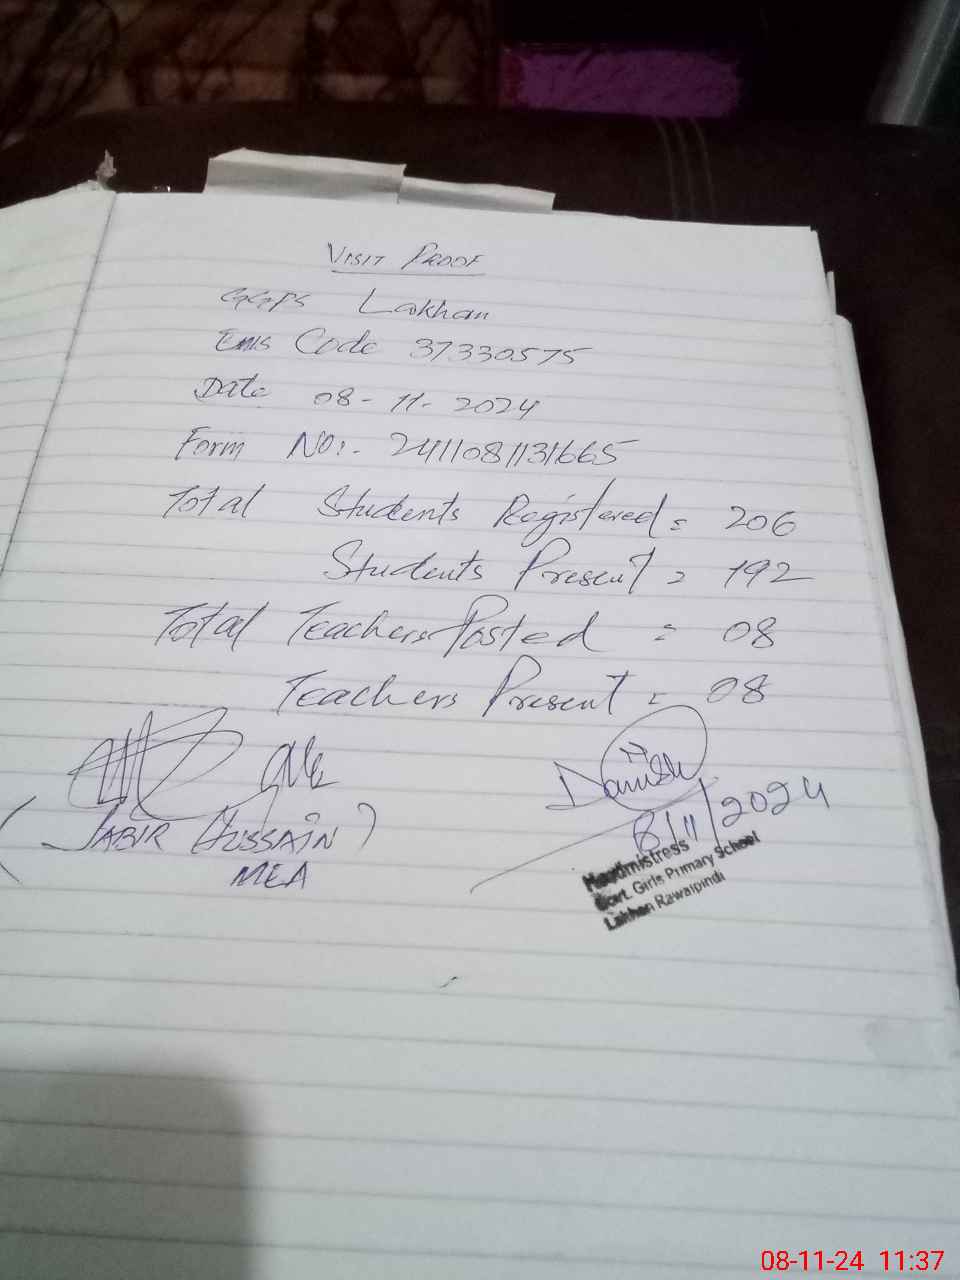 VISIT PROOF
GGPS Lakhan
EMIS Code 37330575
Date 08-11-2024
Form No:- 2411081131665
Total Students Registered = 206
Students Present = 192
Total Teachers Posted = 08
Teachers Present = 08
Danish
8/11/2024
(JABIR HUSSAIN)
MEA
Headmistress
Govt. Girls Primary School
Lakhan Rawalpindi
08-11-24 11:37